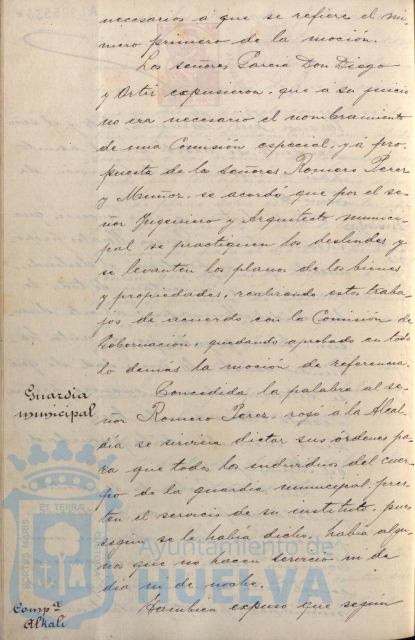 necesarios á que se refiere el nú-
mero primero de la moción.
Los señores García Don Diego
y Ortiz expusieron, que á su juicio
no era necesario el nombramiento
de una Comisión especial, y á pro-
puesta de los señores Romero Perez
y Muñoz, se acordó que por el se-
ñor Ingeniero y Arquitecto munici-
pal se practiquen los deslindes y
se levanten los planos de los bienes
y propiedades, realizando estos traba-
jos de acuerdo con la Comisión de
Gobernación, quedando aprobado en todo
lo demás la moción de referencia.
Guardia
municipal
Concedida la palabra al se-
ñor Romero Perez, rogó á la Alcal-
día se sirviera dictar sus órdenes pa-
ra que todos los individuos del cuer-
po de la guardia municipal, pres-
ten el servicio de su instituto, pues
según se le había dicho, había algu-
nos que no hacen servicio ni de
dia ni de noche.
Comp.ª
Alkali
Tambien expuso que según
Ayuntamiento de
HUELVA